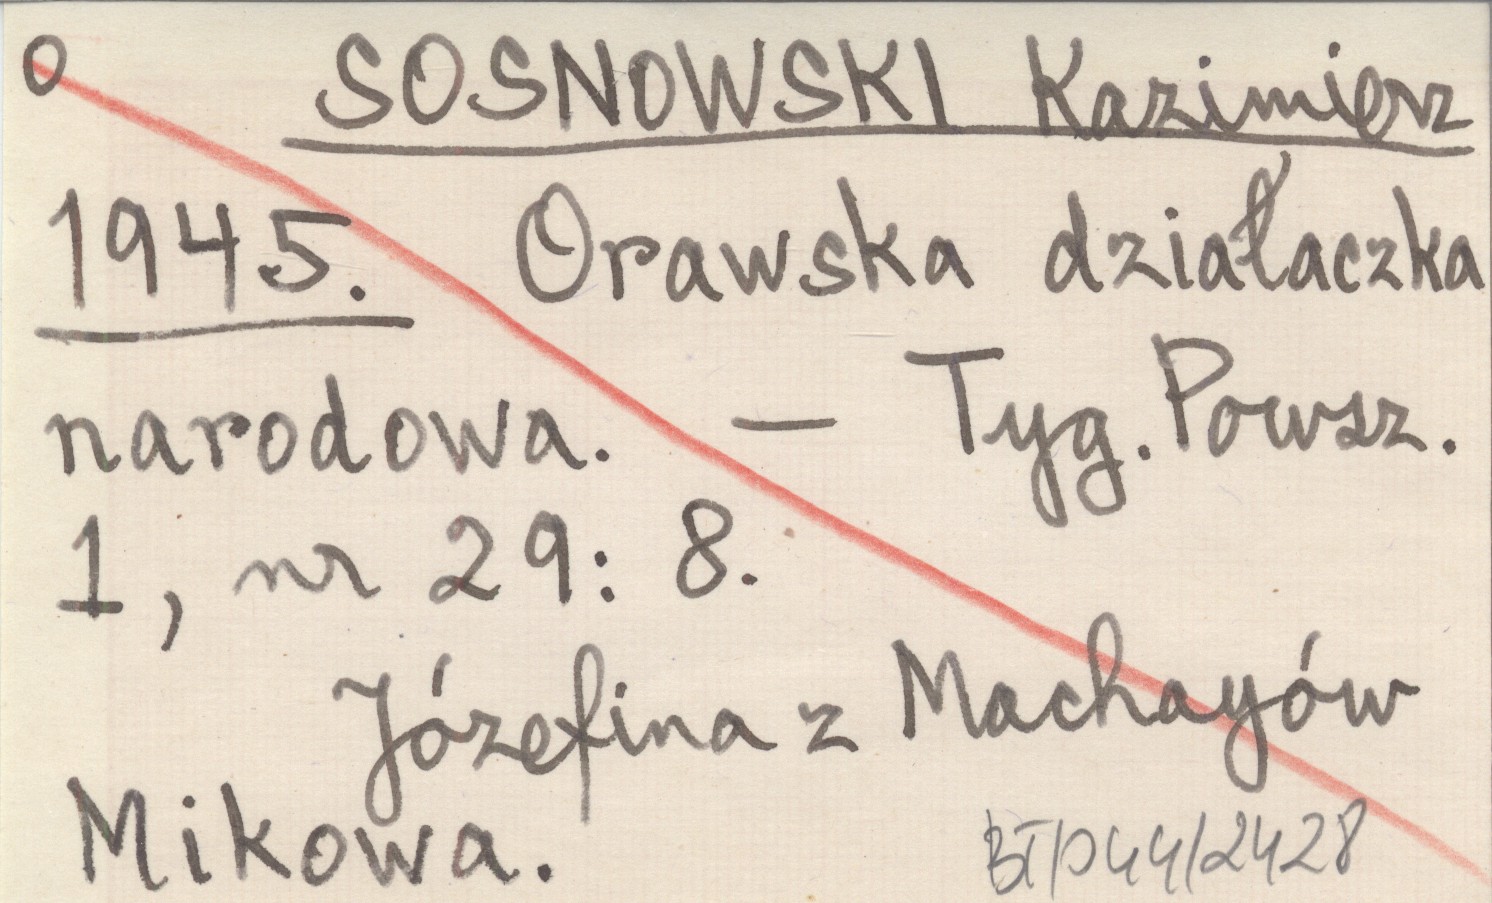 O SOSNOWSKI Kazimierz
1945. Orawska działaczka
narodowa. — Tyg. Powsz.
1, nr 29: 8.
Józefina z Machayów
Mikowa.